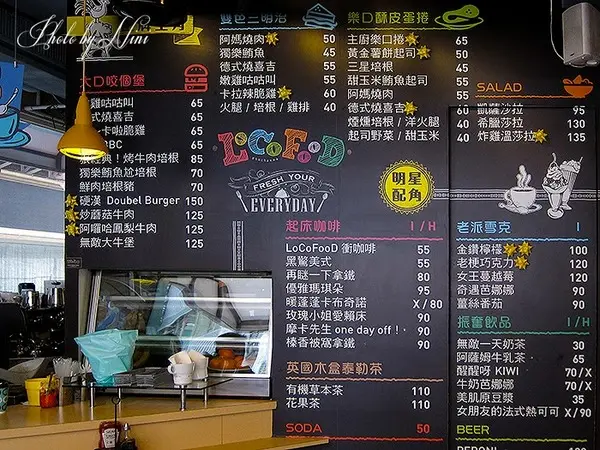 Photo by Nini
大D咬個堡
雞咕咕叫 65
式燒喜吉 65
卡啦脆雞 65
BC 65
！烤牛肉培根 85
獨樂鮪魚尬培根 70
鮮肉培根豬 70
硬漢 Doubel Burger 150
炒蘑菇牛肉 125
阿囉哈鳳梨牛肉 125
無敵大牛堡 125
雙色三明治
阿嬤燒肉 50
獨樂鮪魚 45
德式燒喜吉 45
嫩雞咕咕叫 50
卡拉辣脆雞 50
火腿 / 培根 / 雞排 40
LoCoFooD
FRESH YOUR
EVERYDAY
樂D酥皮蛋捲
主廚樂口捲 65
黃金薯餅起司 55
三星培根 45
甜玉米鮪魚起司 55
阿嬤燒肉 60
德式燒喜吉 60
煙燻培根 / 洋火腿 40
起司野菜 / 甜玉米 40
明星
配角
SALAD
凱薩沙拉 95
希臘莎拉 135
炸雞溫莎拉 130
起床咖啡 I / H
LoCoFooD 衝咖啡 55
黑駕美式 55
再瞇一下拿鐵 80
優雅瑪琪朵 95
暖蓬蓬卡布奇諾 X / 80
玫瑰小姐愛賴床 90
摩卡先生 one day off！ 90
榛香被窩拿鐵 90
英國木盒泰勒茶
有機草本茶 110
花果茶 110
SODA 50
老派雪克 I
金鑽檸檬 100
老梗巧克力 120
女王蔓越莓 120
奇遇芭娜娜 90
薑絲番茄 90
振奮飲品 I / H
無敵一天奶茶 30
阿薩姆牛乳茶 65
醒醒呀 KIWI 70 / X
牛奶芭娜娜 70 / X
美肌原豆漿 35
女朋友的法式熱可可 X / 90
BEER